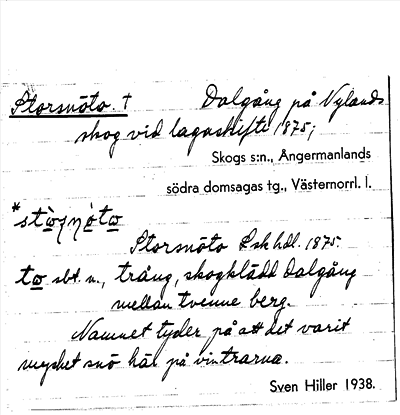 Storsnöto. † Dalgång på Nylands
skog vid lagaskifte 1875;
Skogs s:n., Ångermanlands
södra domsagas tg., Västernorrl. l.
Storsnöto Lskhdl. 1875.
to sbt. n., trång, skogklädd dalgång
mellan tvenne berg.
Namnet tyder på att det varit
mycket snö här på vintrarna.
Sven Hiller 1938.